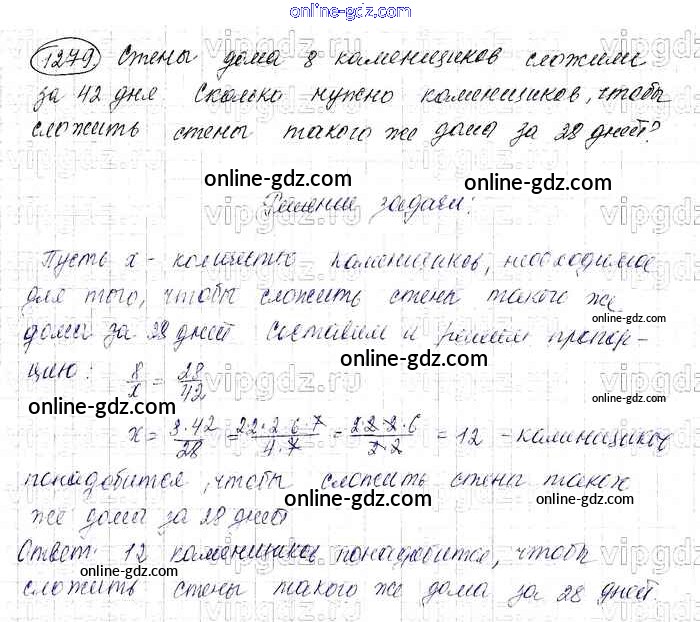 online-gdz.com
1279 Стены дома 8 каменщиков сложили
за 42 дня. Сколько нужно каменщиков, чтобы
сложить стены такого же дома за 28 дней?
online-gdz.com online-gdz.com
Решение задачи:
Пусть x - количество каменщиков, необходимое
для того, чтобы сложить стены такого же
online-gdz.com
дома за 28 дней. Составим и решим пропор-
online-gdz.com
цию: 8/x = 28/42
online-gdz.com
online-gdz.com
x = 8·42/28 = 2·2·2·6·7/4·7 = 2·2·2·6/2·2 = 12 - каменщиков
понадобится, чтобы сложить стены таког
online-gdz.com online-gdz.com
же дома за 28 дней
Ответ: 12 каменщиков понадобится, чтобы
online-gdz.com
сложить стены такого же дома за 28 дней.
online-gdz.com